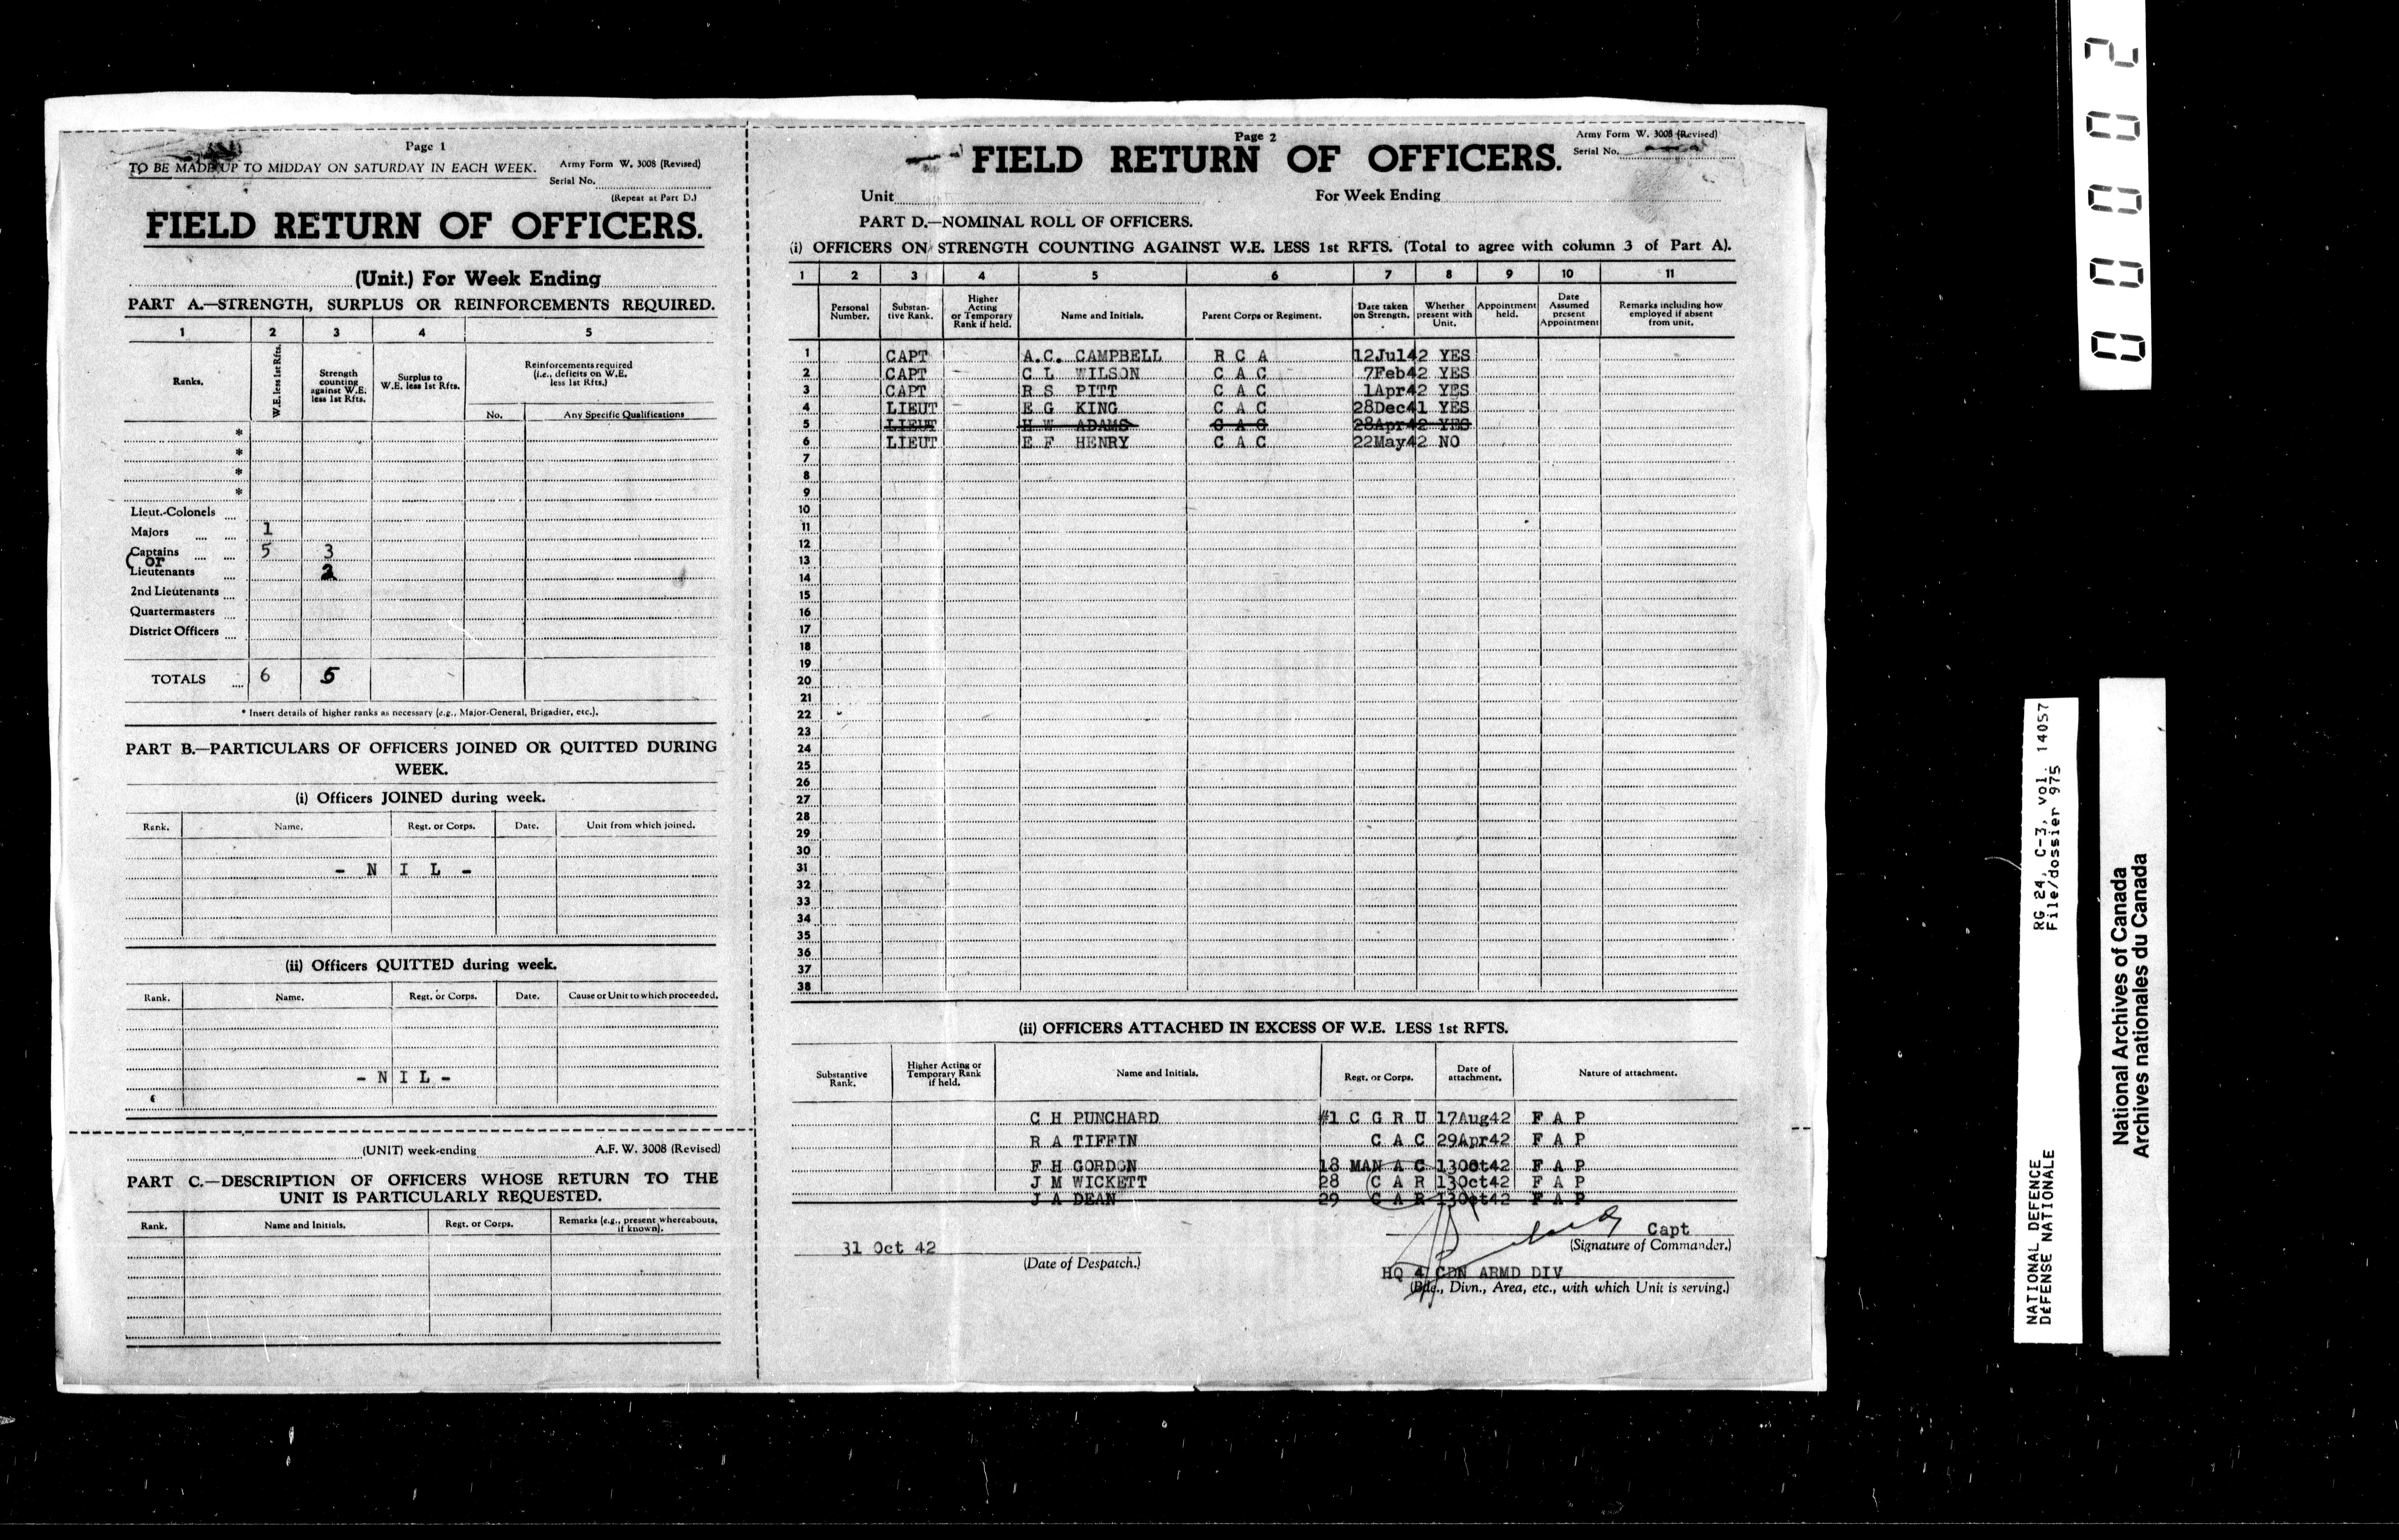 Page 1
TO BE MADE UP TO MIDDAY ON SATURDAY IN EACH WEEK.
Army Form W. 3008 (Revised)
Serial No.
(Repeat at Part D.)
FIELD RETURN OF OFFICERS.
(Unit.) For Week Ending
PART A.—STRENGTH, SURPLUS OR REINFORCEMENTS REQUIRED.
1 2 3 4 5
Ranks.
W.E. less 1st Rfts.
Strength counting against W.E. less 1st Rfts.
Surplus to W.E. less 1st Rfts.
Reinforcements required (i.e., deficits on W.E. less 1st Rfts.)
No. Any Specific Qualifications
*
*
*
*
Lieut.-Colonels
Majors 1
Captains 5 3
(or
Lieutenants 2
2nd Lieutenants
Quartermasters
District Officers
TOTALS 6 5
* Insert details of higher ranks as necessary (e.g., Major-General, Brigadier, etc.).
PART B.—PARTICULARS OF OFFICERS JOINED OR QUITTED DURING
WEEK.
(i) Officers JOINED during week.
Rank. Name. Regt. or Corps. Date. Unit from which joined.
- N I L -
(ii) Officers QUITTED during week.
Rank. Name. Regt. or Corps. Date. Cause or Unit to which proceeded.
- N I L -
(UNIT) week-ending A.F. W. 3008 (Revised)
PART C.—DESCRIPTION OF OFFICERS WHOSE RETURN TO THE
UNIT IS PARTICULARLY REQUESTED.
Rank. Name and Initials. Regt. or Corps. Remarks (e.g., present whereabouts, if known).
Page 2
Army Form W. 3008 (Revised)
Serial No.
FIELD RETURN OF OFFICERS.
Unit For Week Ending
PART D.—NOMINAL ROLL OF OFFICERS.
(i) OFFICERS ON STRENGTH COUNTING AGAINST W.E. LESS 1st RFTS. (Total to agree with column 3 of Part A).
1 2 3 4 5 6 7 8 9 10 11
Personal Number.
Substan- tive Rank.
Higher Acting or Temporary Rank if held.
Name and Initials.
Parent Corps or Regiment.
Date taken on Strength.
Whether present with Unit.
Appointment held.
Date Assumed present Appointment
Remarks including how employed if absent from unit.
1 CAPT A.C. CAMPBELL R C A 12Jul42 YES
2 CAPT C L WILSON C A C 7Feb42 YES
3 CAPT R S PITT C A C 1Apr42 YES
4 LIEUT E G KING C A C 28Dec41 YES
5 LIEUT H W ADAMS C A C 28Apr42 YES
6 LIEUT E F HENRY C A C 22May42 NO
7
8
9
10
11
12
13
14
15
16
17
18
19
20
21
22
23
24
25
26
27
28
29
30
31
32
33
34
35
36
37
38
(ii) OFFICERS ATTACHED IN EXCESS OF W.E. LESS 1st RFTS.
Substantive Rank.
Higher Acting or Temporary Rank if held.
Name and Initials.
Regt. or Corps.
Date of attachment.
Nature of attachment.
C H PUNCHARD #1 C G R U 17Aug42 F A P
R A TIFFIN C A C 29Apr42 F A P
F H GORDON 18 MAN A C 13Oct42 F A P
J M WICKETT 28 C A R 13Oct42 F A P
J A DEAN 29 C A R 13Oct42 F A P
Capt
(Signature of Commander.)
31 Oct 42
(Date of Despatch.)
HQ 4 CDN ARMD DIV
(Bde., Divn., Area, etc., with which Unit is serving.)
00002
RG 24, C-3, vol. 14057
File/dossier 975
NATIONAL DEFENCE
DÉFENSE NATIONALE
National Archives of Canada
Archives nationales du Canada